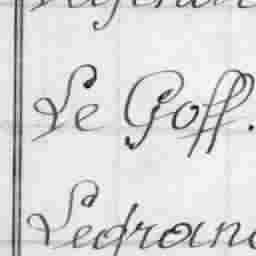 Le Goff.
Legrand